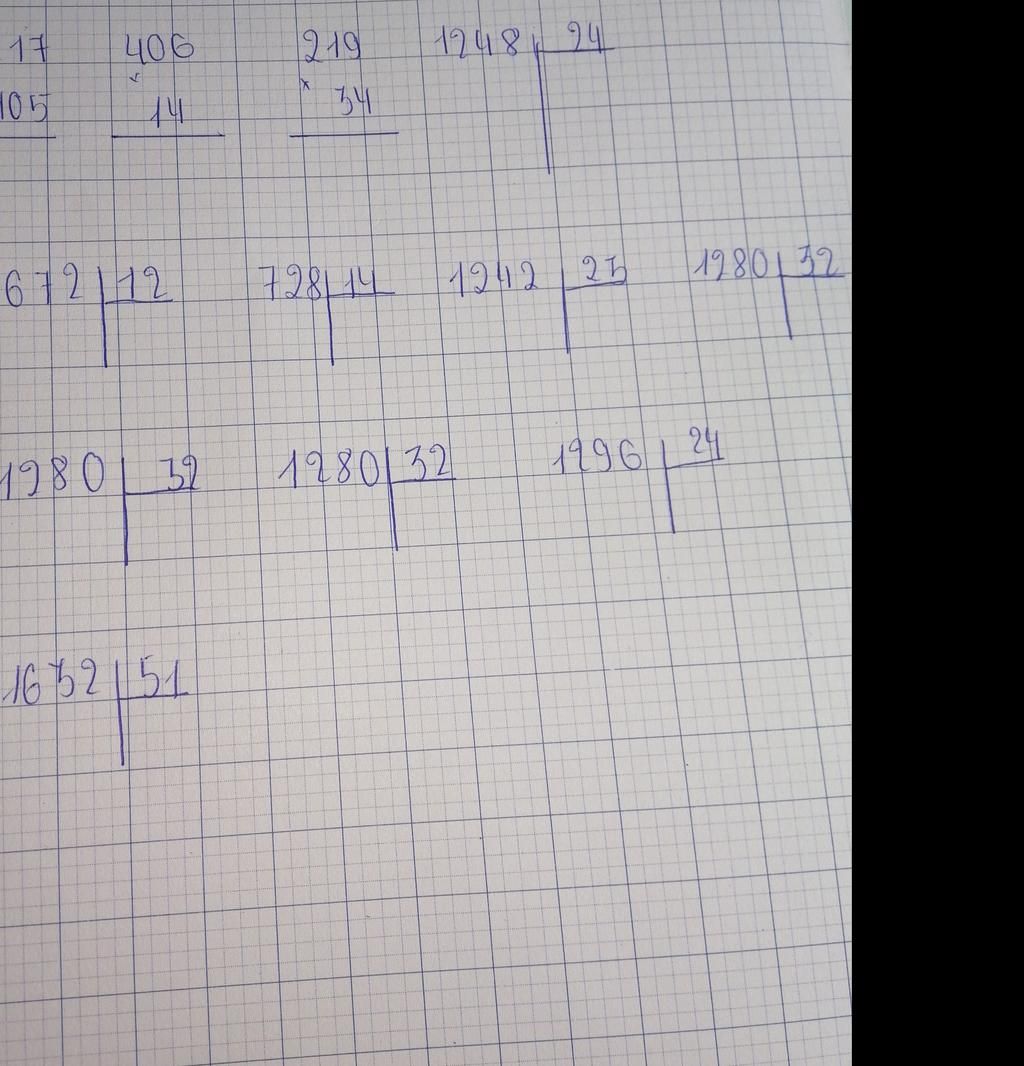 17 406 219 1248 24
105 × 14 × 34
672 12 728 14 1242 23 1280 32
1280 32 1280 32 1296 24
1632 51